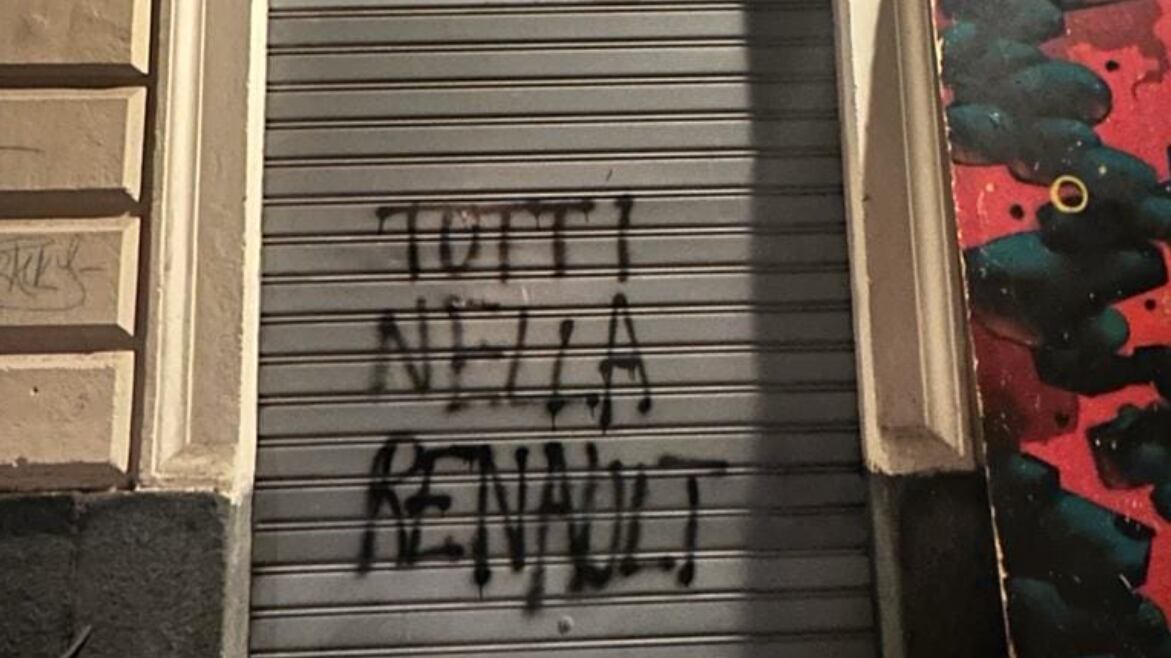 TOTTI
NELLA
RENAULT